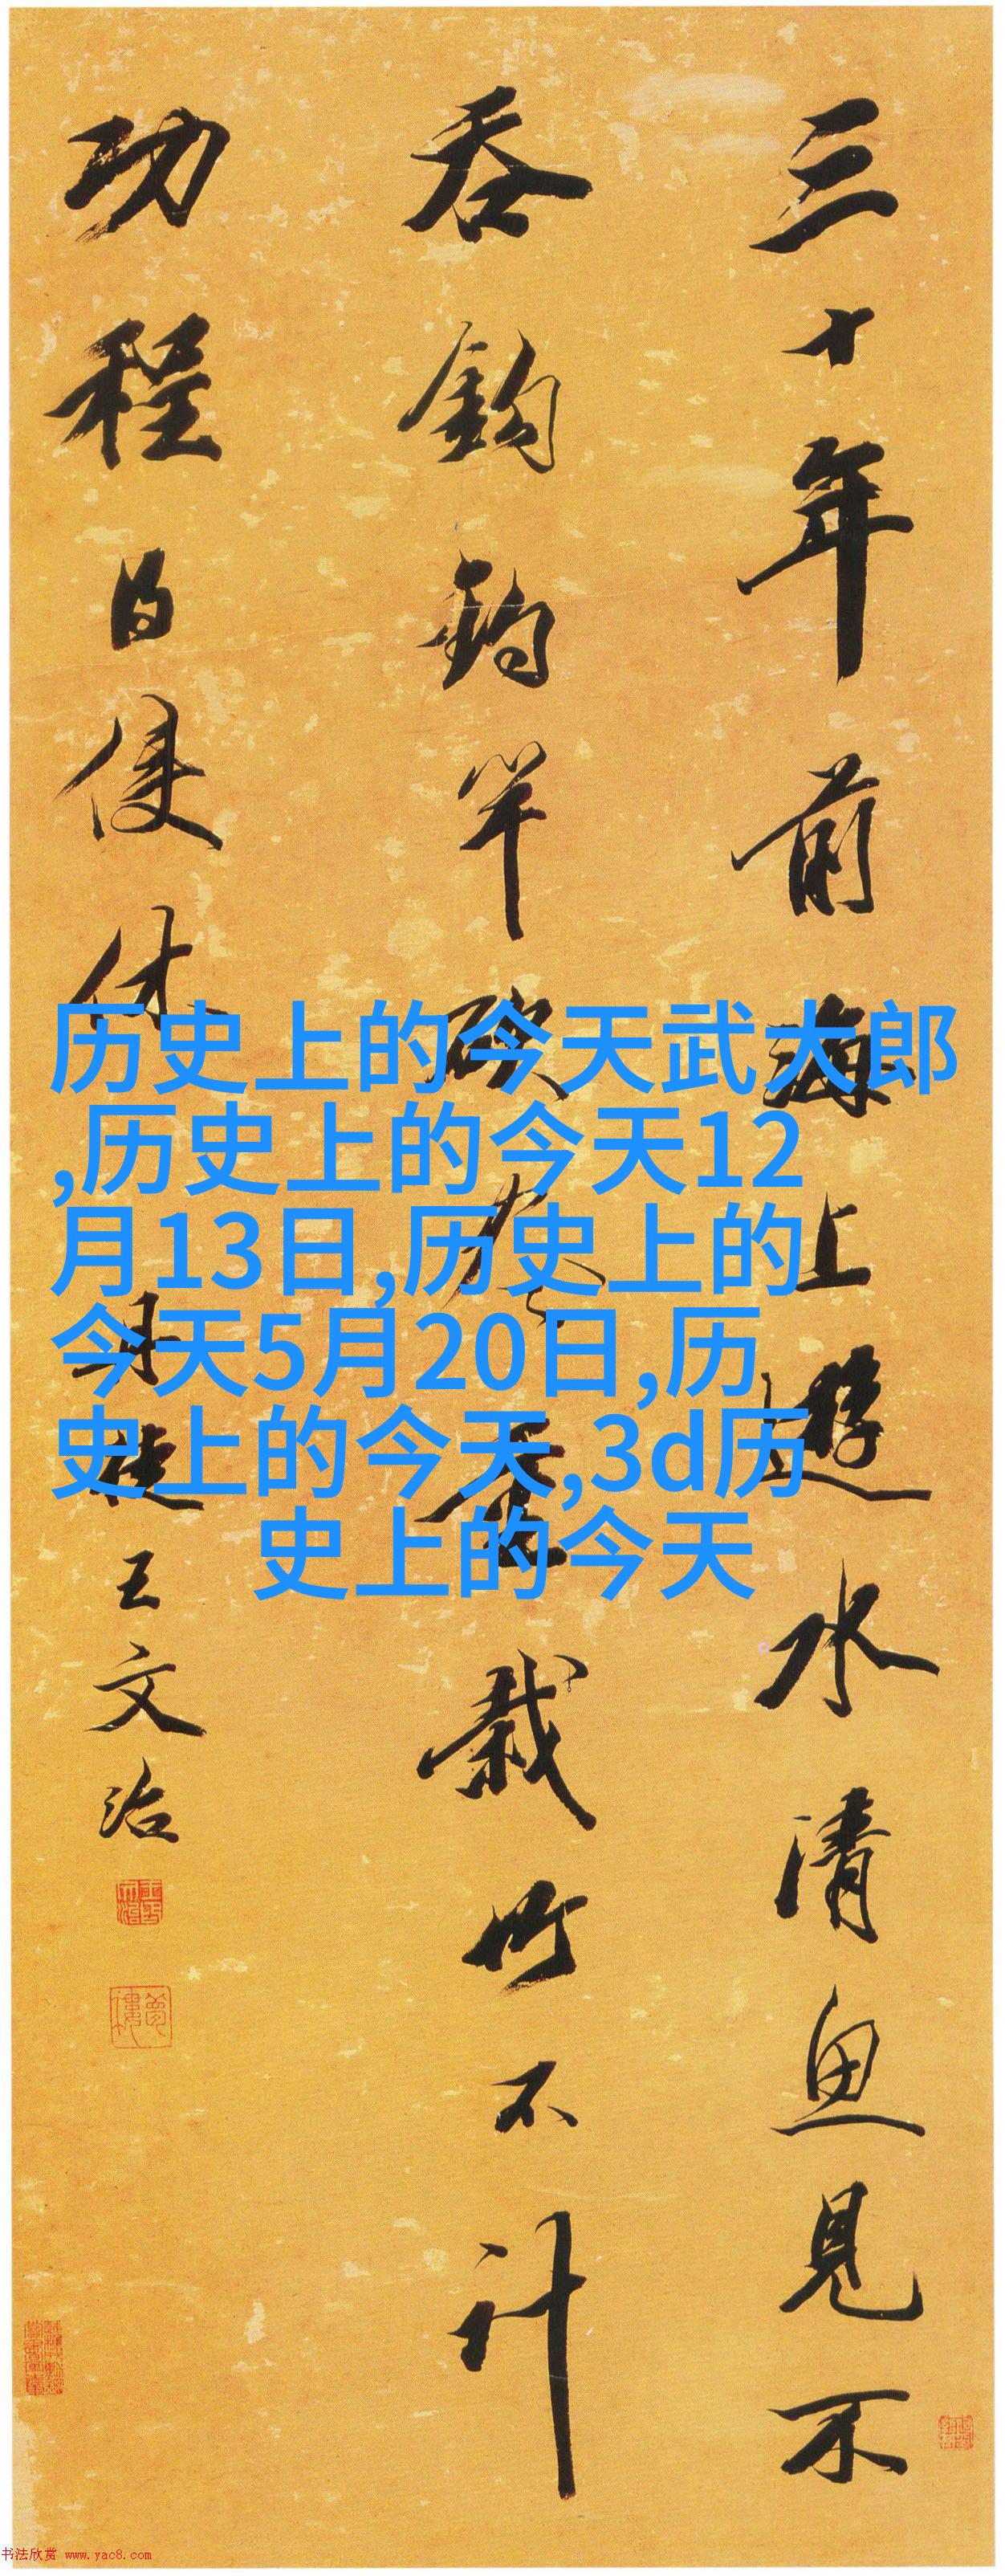 三十年前海上遊水清魚見不
吞鉤釣竿斫盡重栽竹不計
功程得便休
丹徒王文治
历史上的今天武大郎
,历史上的今天12
月13日,历史上的
今天5月20日,历
史上的今天,3d历
史上的今天
书法欣赏 www.yac8.com